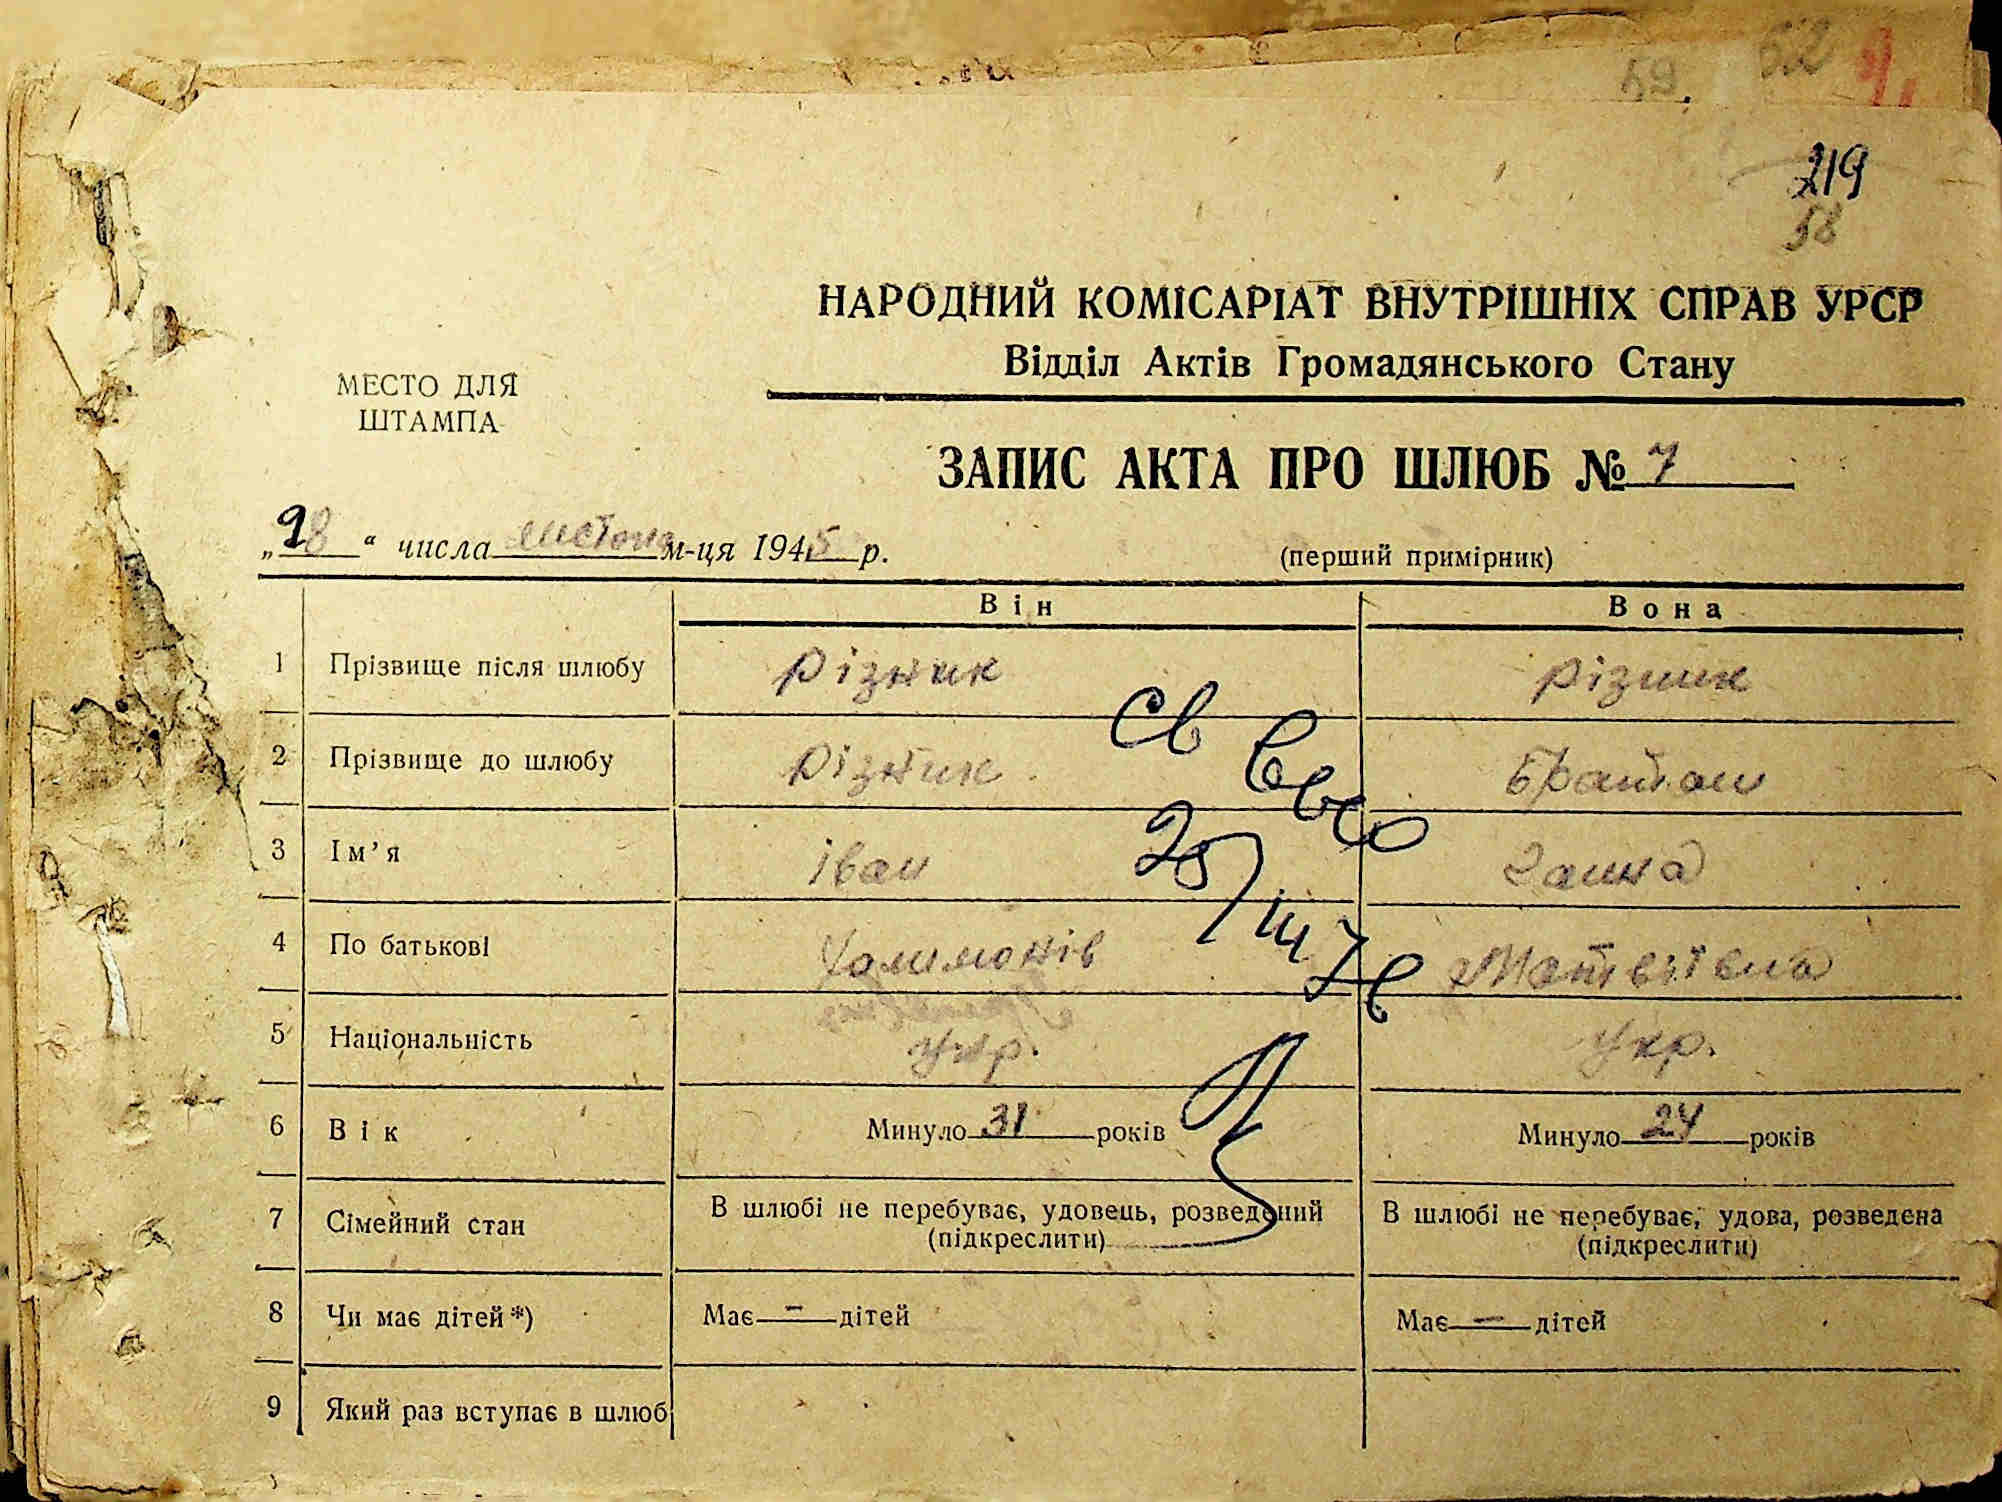 59 62
219
58
НАРОДНИЙ КОМІСАРІАТ ВНУТРІШНІХ СПРАВ УРСР
Відділ Актів Громадянського Стану
МЕСТО ДЛЯ
ШТАМПА
ЗАПИС АКТА ПРО ШЛЮБ № 7
„28“ числа листопа м-ця 1945 р.
(перший примірник)
Він Вона
1 Прізвище після шлюбу Різник Різник
2 Прізвище до шлюбу Різник Братан
3 Ім’я Іван Ганна
4 По батькові Матвіївна
5 Національність Укр. Укр.
6 Вік Минуло 31 років Минуло 24 років
7 Сімейний стан В шлюбі не перебуває, удовець, розведений (підкреслити) В шлюбі не перебуває, удова, розведена (підкреслити)
8 Чи має дітей*) Має — дітей Має — дітей
9 Який раз вступає в шлюб